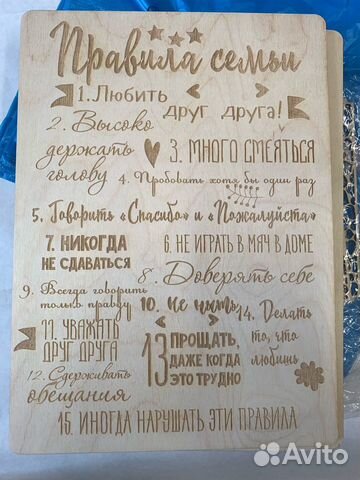 Правила семьи
1. Любить
друг друга!
2. Высоко
держать
голову
3. МНОГО СМЕЯТЬСЯ
4. Пробовать хотя бы один раз
5. Говорить «Спасибо» и «Пожалуйста»
7. НИКОГДА
НЕ СДАВАТЬСЯ
6. НЕ ИГРАТЬ В МЯЧ В ДОМЕ
8. Доверять себе
9. Всегда говорить
только правду
10. Не ныть
14. Делать
то, что
любишь
11. УВАЖАТЬ
ДРУГ ДРУГА
13 ПРОЩАТЬ,
ДАЖЕ КОГДА
ЭТО ТРУДНО
12. Сдерживать
обещания
15. ИНОГДА НАРУШАТЬ ЭТИ ПРАВИЛА
Avito